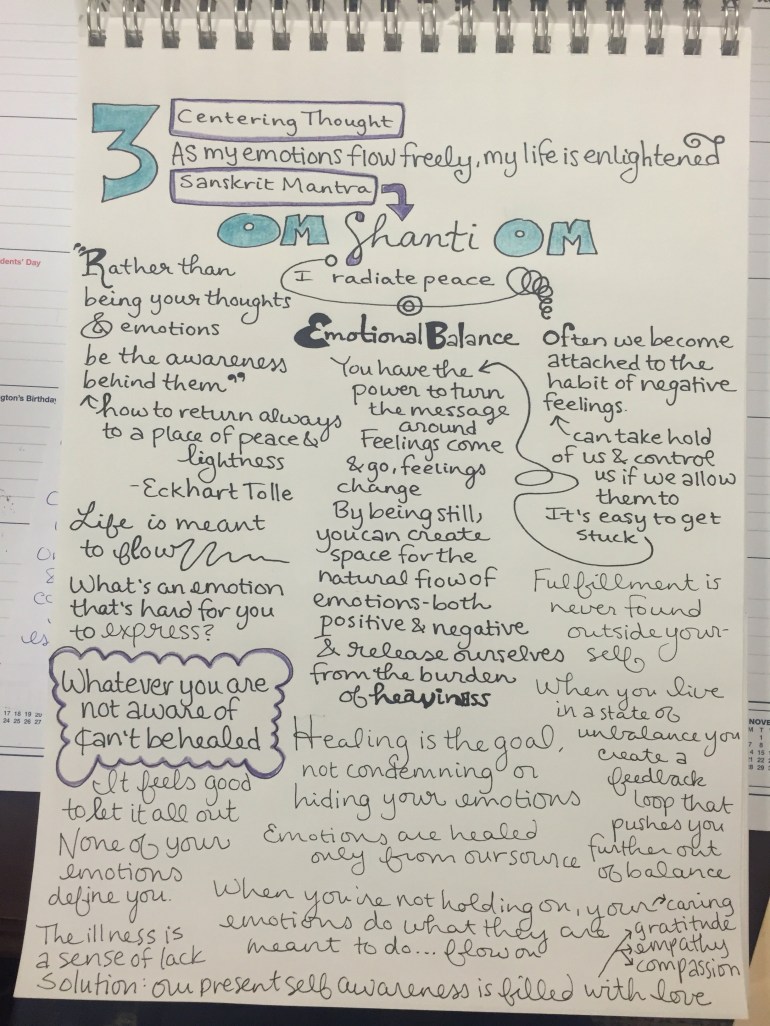 3
Centering Thought
As my emotions flow freely, my life is enlightened
Sanskrit Mantra
OM Shanti OM
I radiate peace
"Rather than
being your thoughts
& emotions
be the awareness
behind them"
how to return always
to a place of peace &
lightness
-Eckhart Tolle
Life is meant
to flow
What's an emotion
that's hard for you
to express?
Whatever you are
not aware of
can't be healed
It feels good
to let it all out
None of your
emotions
define you.
The illness is
a sense of lack
Emotional Balance
You have the
power to turn
the message
around
Feelings come
& go, feelings
change
By being still,
you can create
space for the
natural flow of
emotions-both
positive & negative
& release ourselves
from the burden
of heaviness
Often we become
attached to the
habit of negative
feelings.
can take hold
of us & control
us if we allow
them to
It's easy to get
stuck
Fulfillment is
never found
outside your-
self
When you live
in a state of
unbalance you
create a
feedback
loop that
pushes you
further out
of balance
Healing is the goal,
not condemning or
hiding your emotions
Emotions are healed
only from our source
When you're not holding on, your
emotions do what they are
meant to do... flow on
caring
gratitude
empathy
compassion
Solution: our present self awareness is filled with love
dents' Day
gton's Birthday
17 18 19 20
24 25 26 27
NOVE